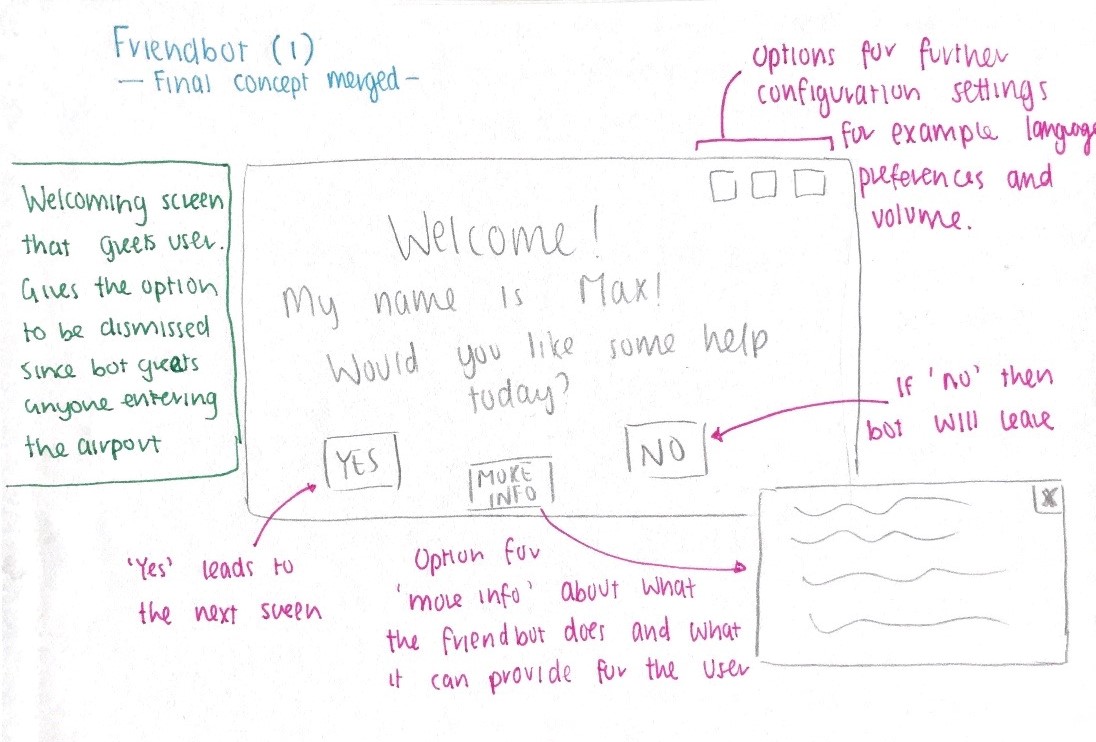 Friendbot (1)
— Final concept merged –
Options for further
configuration settings
for example language
preferences and
volume.
Welcoming screen
that greets user.
Gives the option
to be dismissed
since bot greets
anyone entering
the airport
Welcome!
My name is Max!
Would you like some help
today?
YES
MORE
INFO
NO
If 'no' then
bot will leave
X
'Yes' leads to
the next screen
Option for
'more info' about what
the friendbot does and what
it can provide for the user